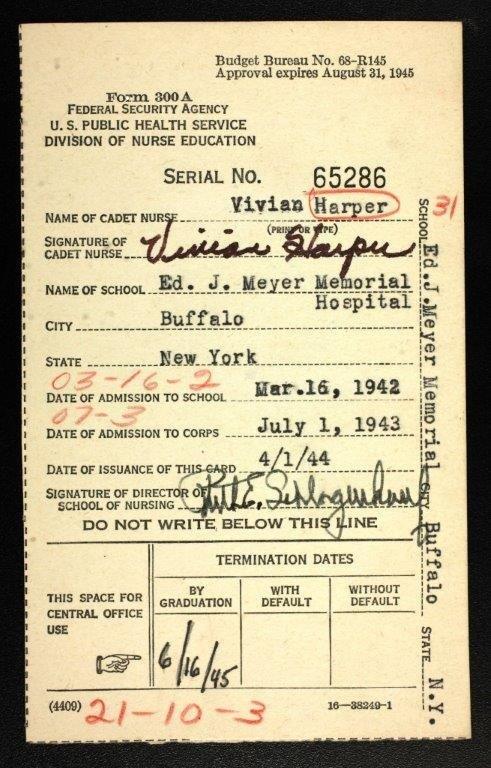 Budget Bureau No. 68-R145
Approval expires August 31, 1945
Form 300A
FEDERAL SECURITY AGENCY
U. S. PUBLIC HEALTH SERVICE
DIVISION OF NURSE EDUCATION
SERIAL NO. 65286
NAME OF CADET NURSE Vivian Harper
(PRINT OR TYPE)
SIGNATURE OF
CADET NURSE Vivian Harper
NAME OF SCHOOL Ed. J. Meyer Memorial
Hospital
CITY Buffalo
STATE New York
03-16-2
DATE OF ADMISSION TO SCHOOL Mar.16, 1942
07-3
DATE OF ADMISSION TO CORPS July 1, 1943
DATE OF ISSUANCE OF THIS CARD 4/1/44
SIGNATURE OF DIRECTOR OF
SCHOOL OF NURSING E.
DO NOT WRITE BELOW THIS LINE
THIS SPACE FOR
CENTRAL OFFICE
USE
TERMINATION DATES
BY
GRADUATION
WITH
DEFAULT
WITHOUT
DEFAULT
6/16/45
(4409) 21-10-3
16—38249-1
31
SCHOOL Ed.J.Meyer Memorial CITY Buffalo STATE N.Y.